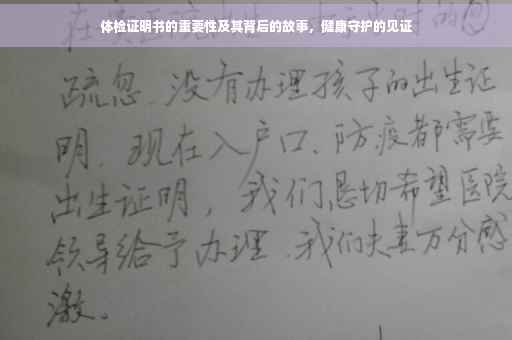 体检证明书的重要性及其背后的故事，健康守护的见证
疏忽.没有办理孩子的出生证
明.现在入户口、防疫都需要
出生证明，我们恳切希望医院
领导给予办理.我们夫妻万分感
激。